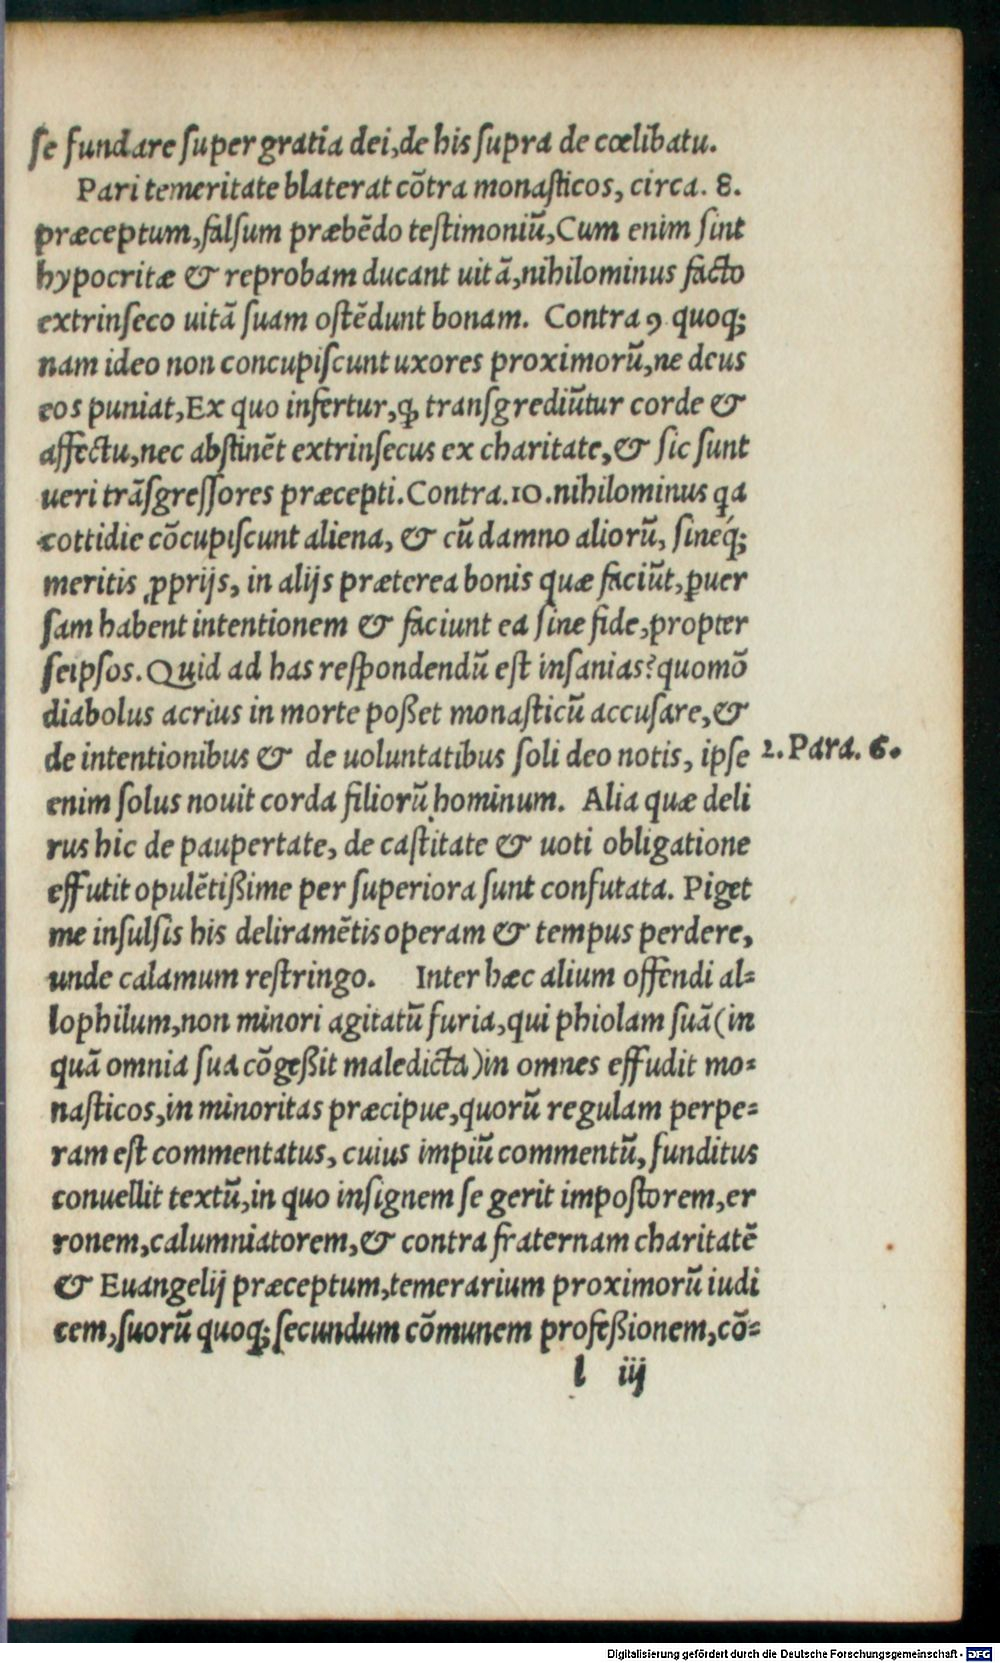 se fundare super gratia dei, de his supra de cœlibatu.
Pari temeritate blaterat cõtra monasticos, circa. 8.
præceptum, falsum præbẽdo testimoniũ, Cum enim sint
hypocritæ & reprobam ducant uitã, nihilominus facto
extrinseco uitã suam ostẽdunt bonam. Contra 9 quoq;
nam ideo non concupiscunt uxores proximorũ, ne deus
eos puniat, Ex quo infertur, ꝙ transgrediũtur corde &
affectu, nec abstinẽt extrinsecus ex charitate, & sic sunt
ueri trãsgressores præcepti. Contra. 10. nihilominus qa
cottidie cõcupiscunt aliena, & cũ damno aliorũ, sineq́;
meritis ꝓprijs, in alijs præterea bonis quæ faciũt, ꝑuer
sam habent intentionem & faciunt ea sine fide, propter
seipsos. Quid ad has respondendũ est insanias? quomõ
diabolus acrius in morte poßet monasticũ accusare, &
de intentionibus & de uoluntatibus soli deo notis, ipse
2. Para. 6.
enim solus nouit corda filiorũ hominum. Alia quæ deli
rus hic de paupertate, de castitate & uoti obligatione
effutit opulẽtißime per superiora sunt confutata. Piget
me insulsis his deliramẽtis operam & tempus perdere,
unde calamum restringo. Inter hæc alium offendi al=
lophilum, non minori agitatũ furia, qui phiolam suã (in
quã omnia sua cõgeßit maledicta) in omnes effudit mo=
nasticos, in minoritas præcipue, quorũ regulam perpe=
ram est commentatus, cuius impiũ commentũ, funditus
conuellit textũ, in quo insignem se gerit impostorem, er
ronem, calumniatorem, & contra fraternam charitatẽ
& Euangelij præceptum, temerarium proximorũ iudi
cem, suorũ quoq; secundum cõmunem profeßionem, cõ=
l iij
Digitalisierung gefördert durch die Deutsche Forschungsgemeinschaft - DFG